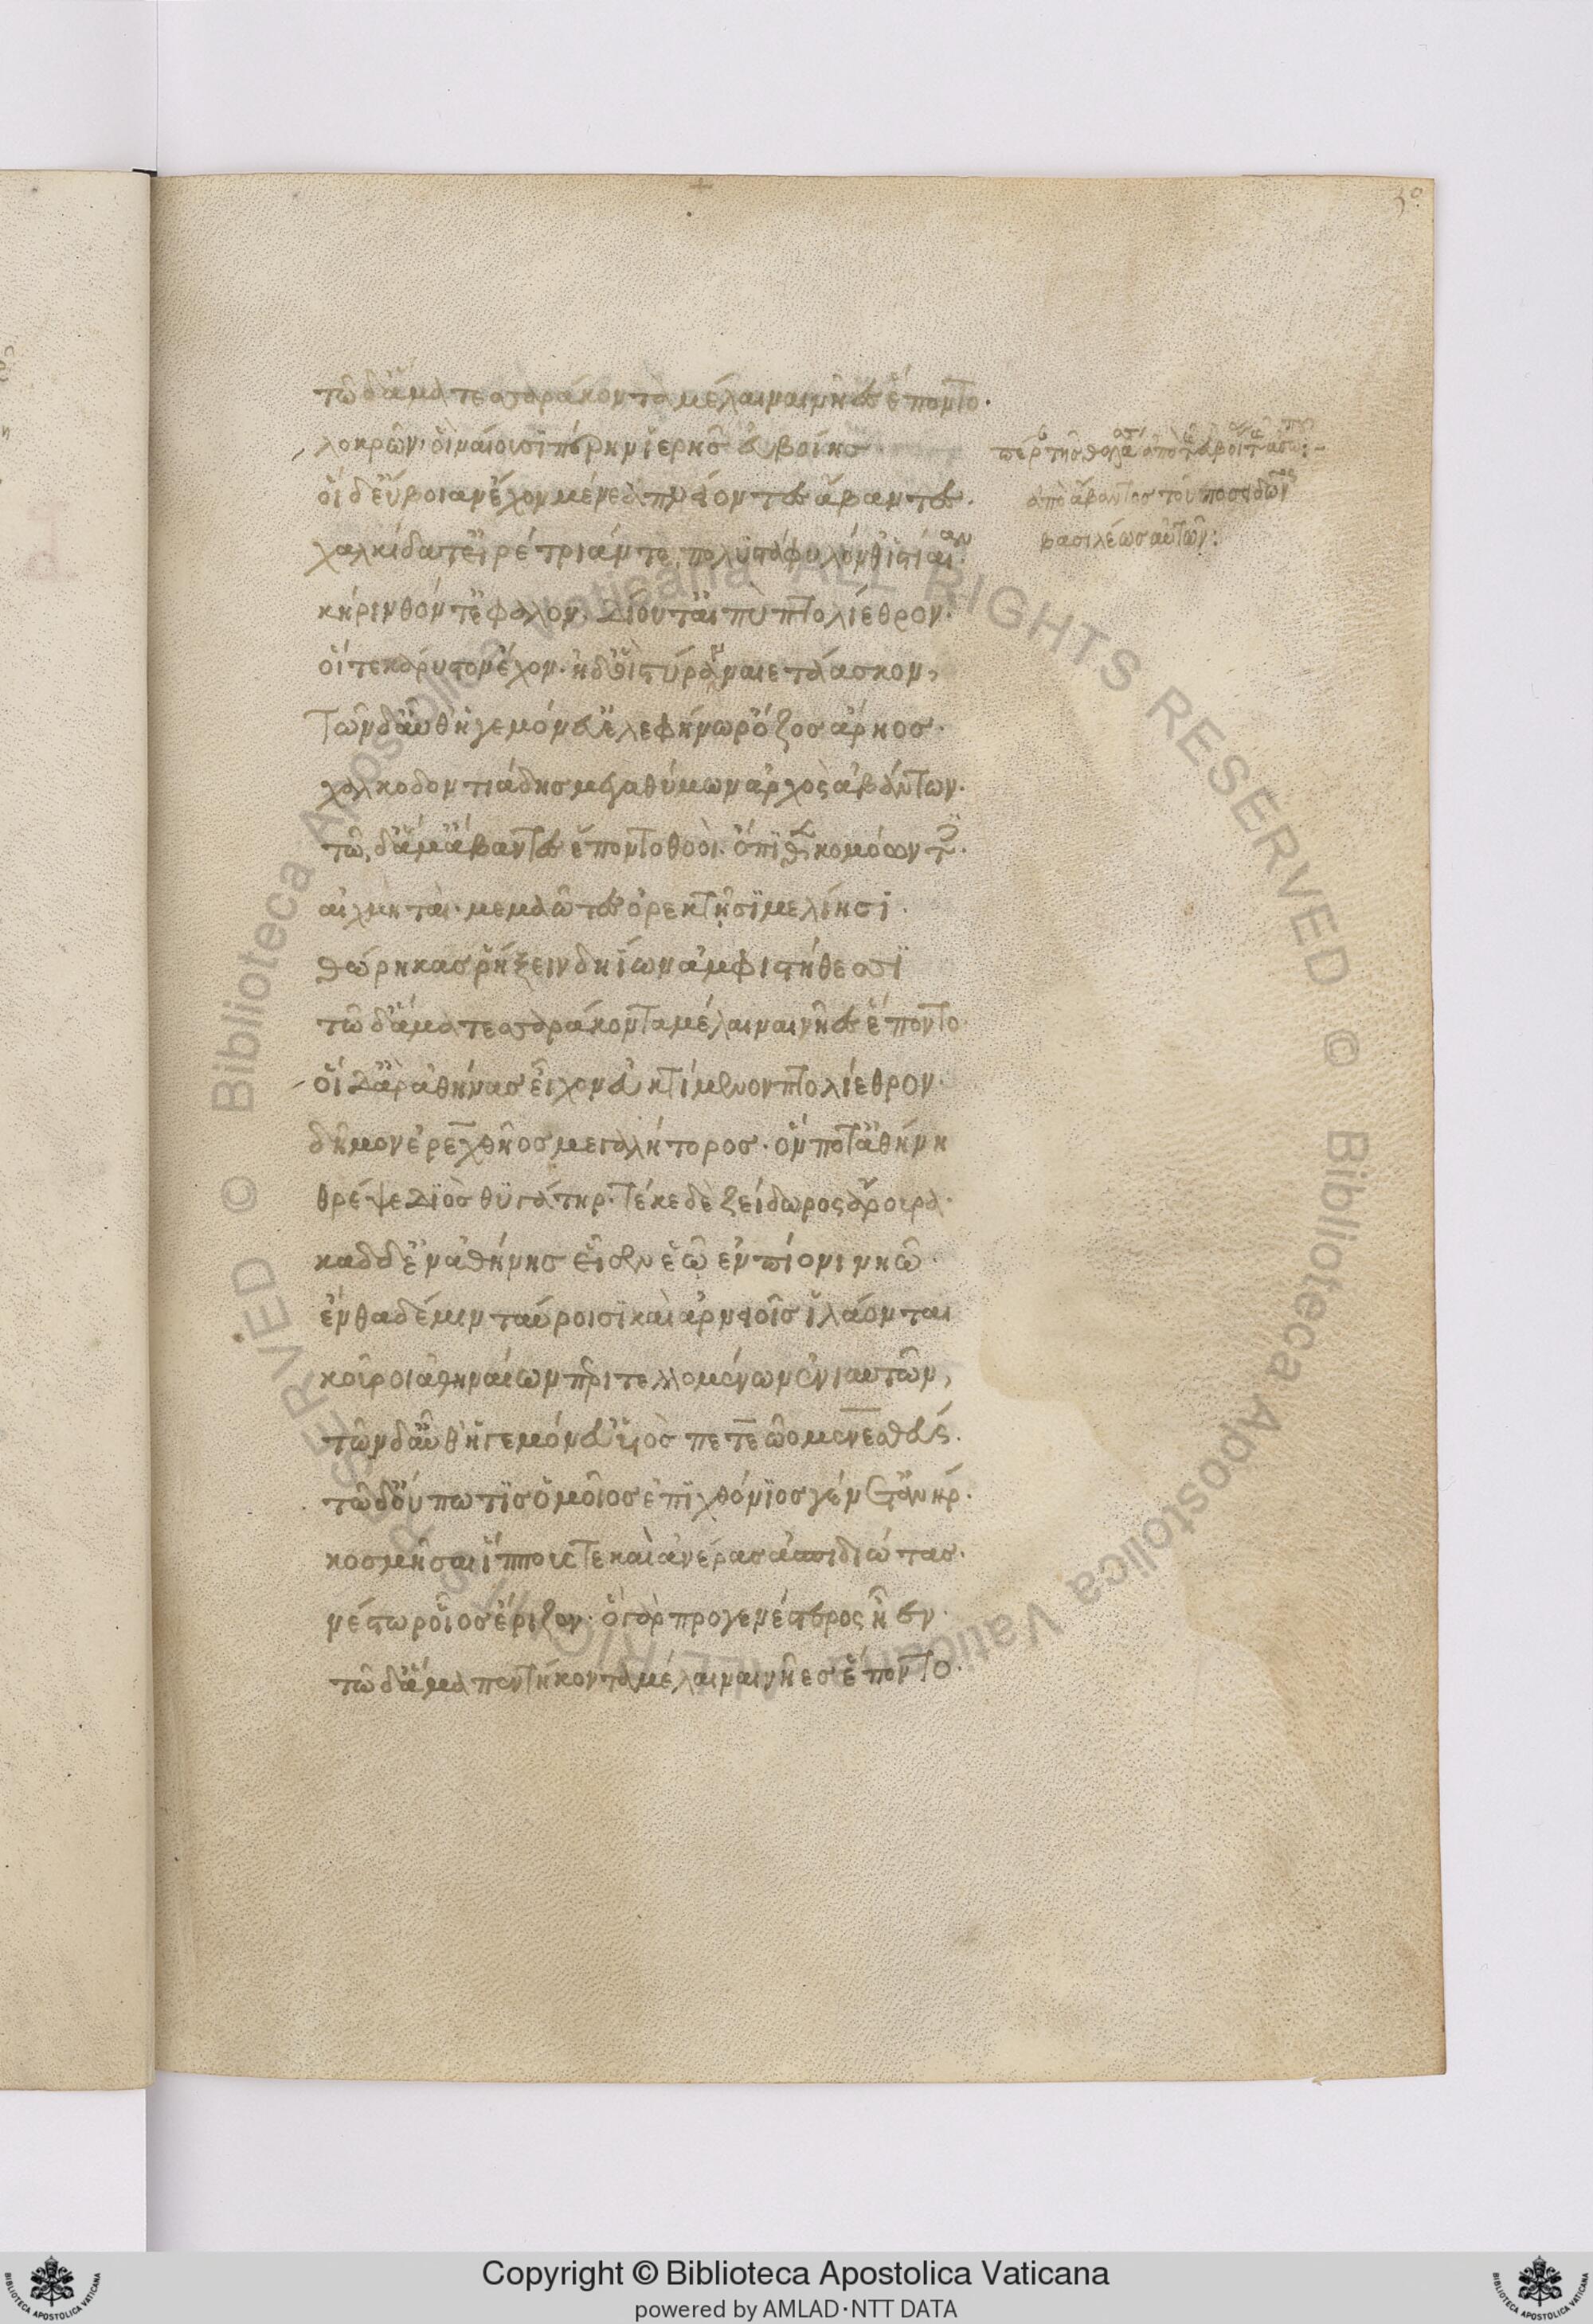 τῶ δ' ἅμα τεσσαράκοντα μέλαιναι νῆες ἕποντο.
λοκρῶν· οἳ ναίουσι πέρην ἱερῆς εὐβοίης
οἳ δ' εὔβοιαν ἔχον μένεα πνείοντες ἄβαντες.
χαλκίδα τ' εἰρέτριάν τε, πολυστάφυλόν θ' ἱστίαιαν
κήρινθόν τ' ἔφαλον. δίου τ' αἰπὺ πτολίεθρον.
οἵ τε κάρυστον ἔχον. ἠδ' οἳ στύρα ναιετάασκον,
τῶν δ' αὖθ' ἡγεμόνευ' ἐλεφήνωρ ὄζος ἄρηος.
χαλκοδοντιάδης μεγαθύμων ἀρχὸς ἀβάντων.
τῶ, δ' ἅμ' ἄβαντες ἕποντο θοοὶ. ὄπιθεν κομόωντες.
αἰχμηταὶ· μεμαῶτες ὀρεκτῆσι μελίησι.
θώρηκας ῥήξειν δηΐων ἀμφὶ στήθεσσι
τῶ δ' ἅμα τεσσαράκοντα μέλαιναι νῆες ἕποντο
οἳ δ' ἄρ' ἀθήνας εἶχον ἐϋκτίμενον πτολίεθρον.
δῆμον ἐρεχθῆος μεγαλήτορος. ὅν ποτ' ἀθήνη
θρέψε διὸς θυγάτηρ. τέκε δὲ ζείδωρος ἄρουρα.
καδ δ' ἐν ἀθήνης εἷσεν ἑῶ ἐν πίονι νηῶ.
ἐνθάδε μιν ταύροισι καὶ ἀρνειοῖς ἱλάονται
κοῦροι ἀθηναίων περιτελλομένων ἐνιαυτῶν,
τῶν δ' αὖθ' ἡγεμόνευ' υἱὸς πετεῶο μενεσθεύς.
τῶ δ' οὔπω τις ὁμοῖος ἐπιχθόνιος γένετ' ἀνήρ.
κοσμῆσαι ἵππους τε καὶ ἀνέρας ἀσπιδιώτας.
νέστωρ οἶος ἔριζεν. ὁ γὰρ προγενέστερος ἦεν.
τῶ δ' ἅμα πεντήκοντα μέλαιναι νῆες ἕποντο.
ἀπὸ ἄβαντος τοῦ ποσειδῶνος
βασιλέως αὐτῶν:
Copyright © Biblioteca Apostolica Vaticana
powered by AMLAD·NTT DATA
© Biblioteca Apostolica Vaticana ALL RIGHTS RESERVED © Biblioteca Apostolica Vaticana ALL RIGHTS RESERVED